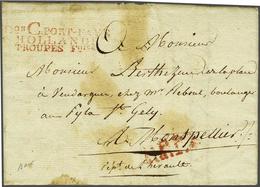 Don C. PORT-PAYÉ
HOLLANDE
TROUPES Fses
A Monsieur
Monsieur Berthezene de la place
à Vendargues, chez Mr. Reboul, boulanger
au Pyla St. Gely.
A Montpellier
Dépt. de l'hérault